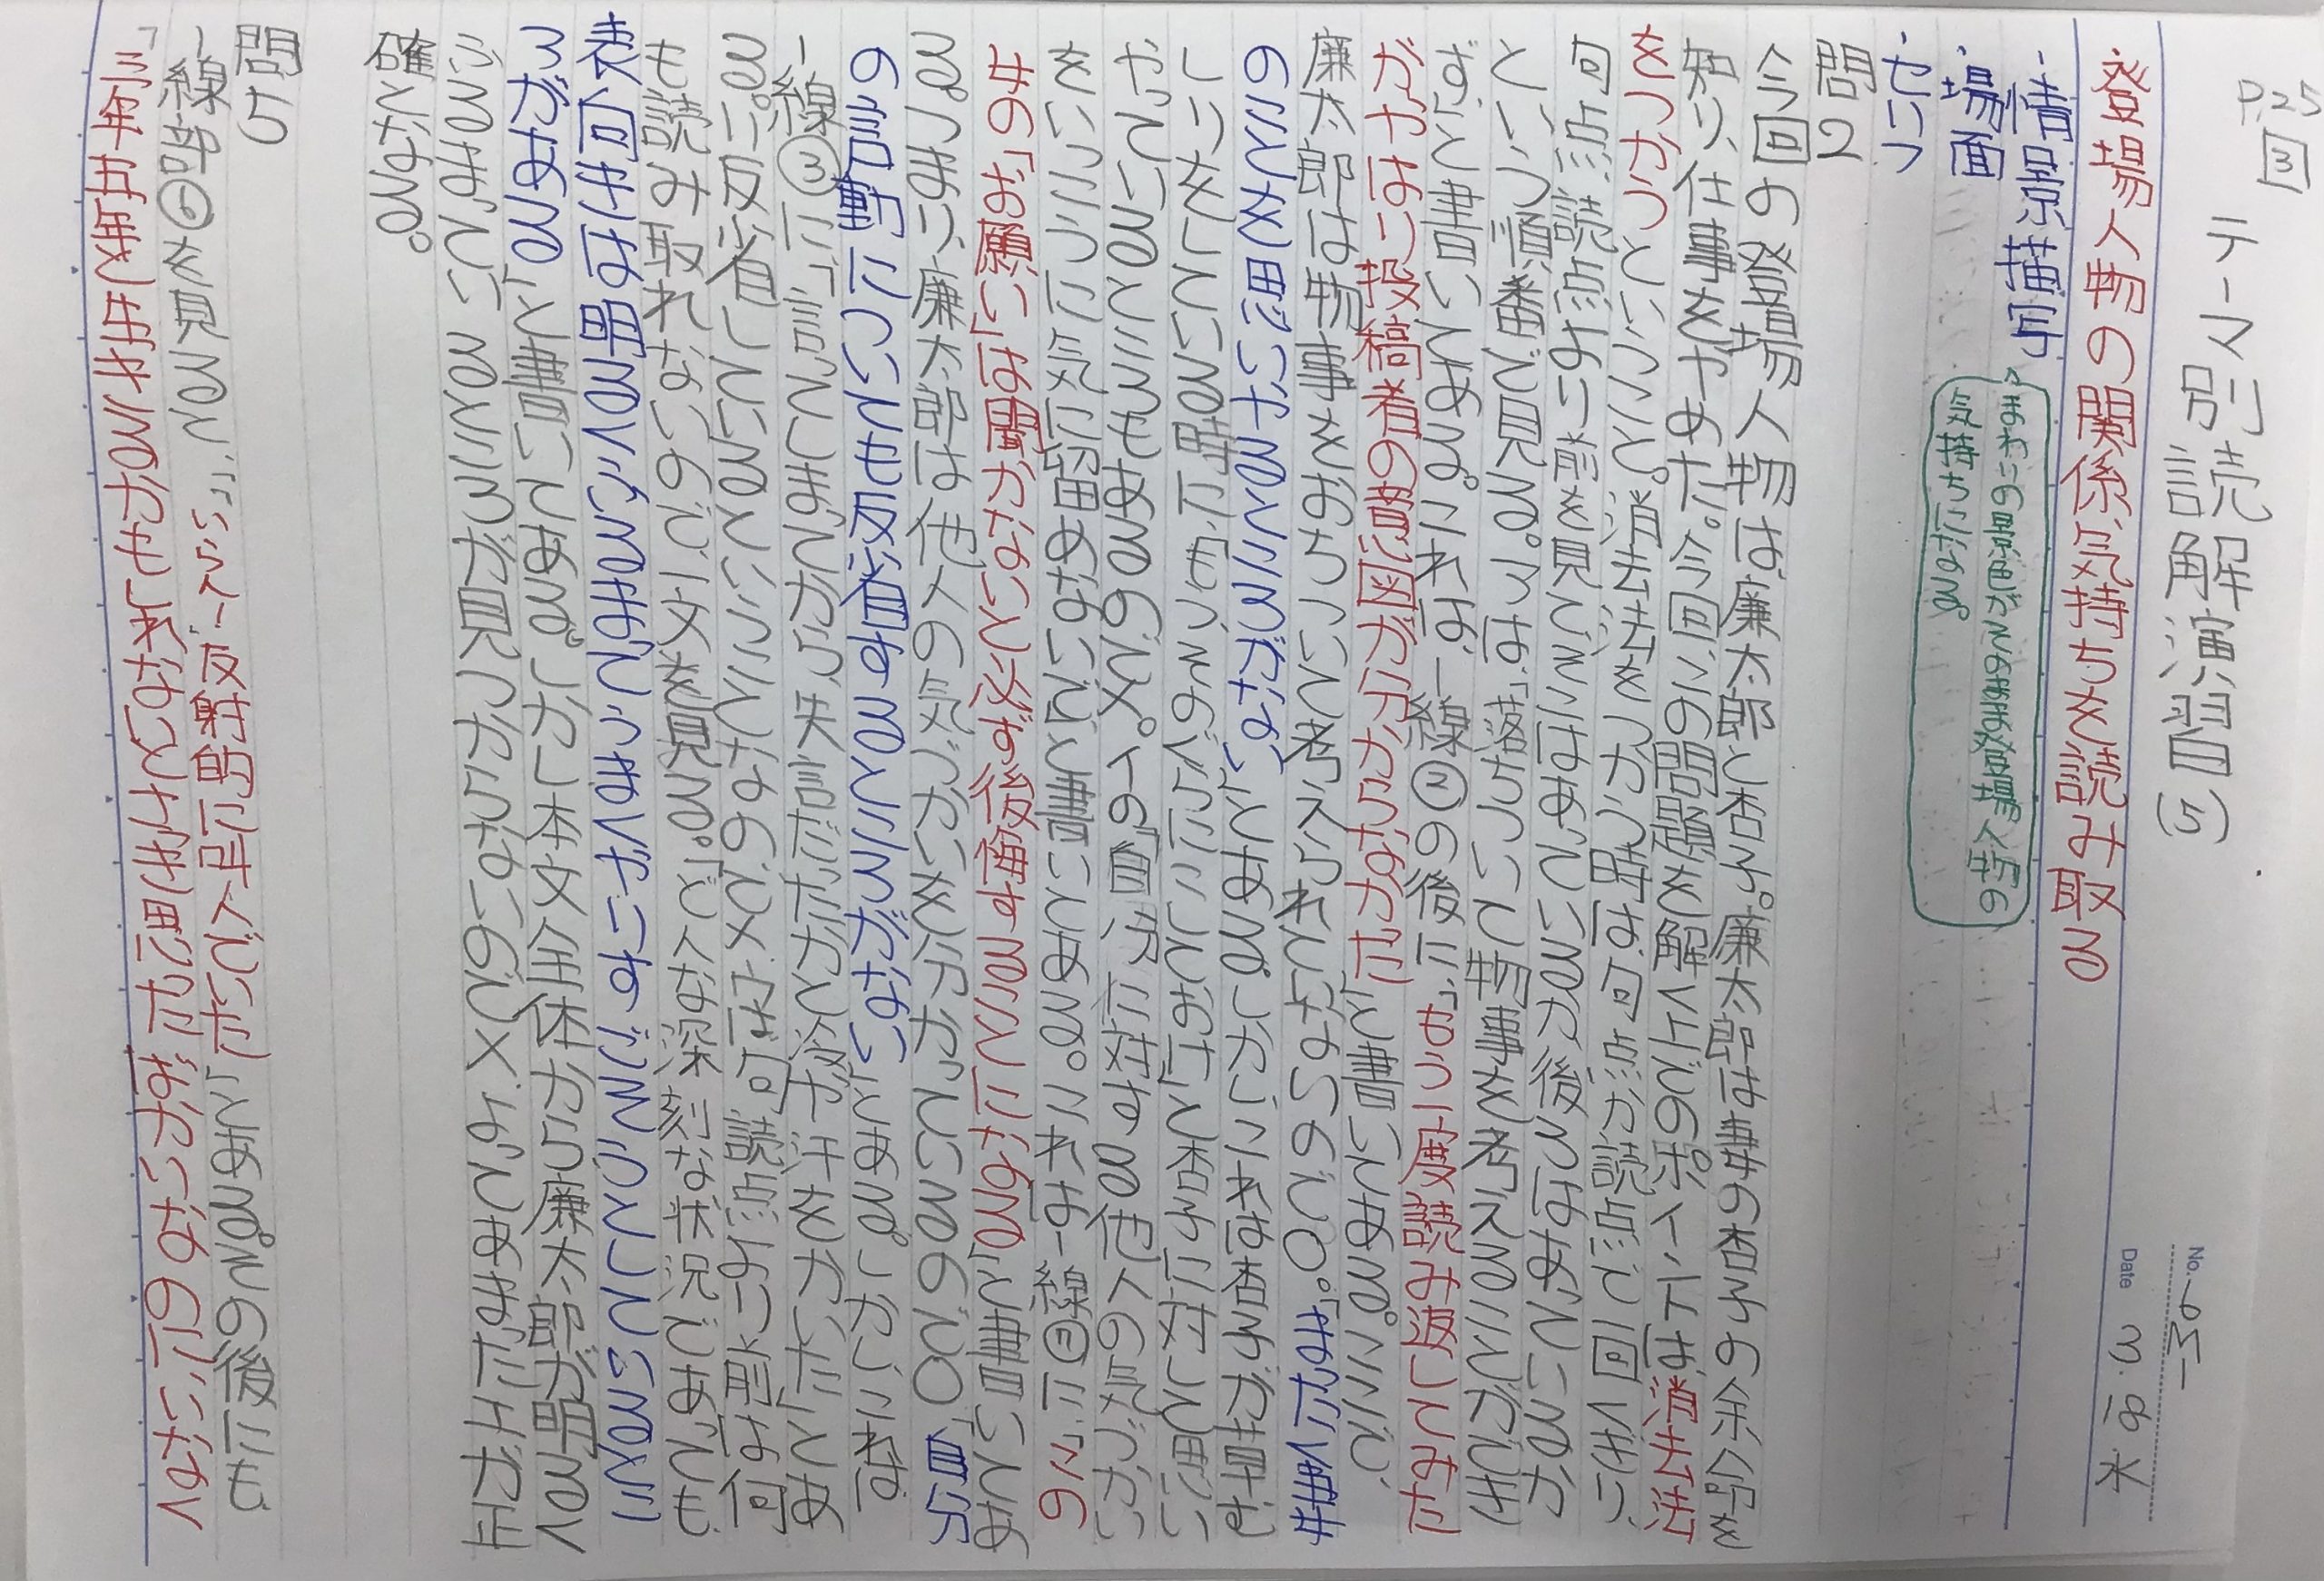 P25
3回 テーマ別読解演習(5)
No. 5-1
Date 3.18 水
登場人物の関係、気持ちを読み取る
・情景描写→まわりの景色がそのまま登場人物の
気持ちになる。
・場面
・セリフ
問2
今回の登場人物は廉太郎と杏子。廉太郎は妻の杏子の余命を
知り、仕事をやめた。今回この問題を解く上でのポイントは消去法
をつかうということ。消去法をつかう時は何か所か読んで1回くぎり、
何か所か読んだより前を見てそこはあっているか後ろはあっているか
という順番で見る。アは「落ちついて物事を考えることができ
ず」と書いてある。これは、―線②の後に、「もう一度読み返してみた
がやはり投稿者の意図が分からなかった」と書いてある。ここで、
廉太郎は物事をおちついて考えられていないので〇。「また、妻
のことを思いやるところがない」とある。しかしこれは杏子が話
しりをしている時に「もうそのくらいにしておけ」と杏子に対して思い
やっているところもあるので、×。イの「自分に対する他人の気づかい
をいうように気に留めないで」と書いてある。これは―線①に、「この
手の「お願い」は聞かないと必ず後悔することになる」と書いてあ
る。つまり、廉太郎は他人の気づかいを分かっているので〇。「自分
の言動についても反省するところがない」とある。しかしこれは
―線③に、「言ってしまってから失言だったかと冷や汗をかいた」とあ
る。「反省しているということなので×。ウは何か所か読んだより前は何
も読み取れないので、下文を見る。「どんな深刻な状況であっても
表向きは明るくふるまってつまらないすがたをとりつくろってしまうところ
がある」と書いてある。しかし本文全体から廉太郎が明るく
ふるまっているところが見つからないので×。よってあまったエが正
確となる。
問5
―線部④を見ると、「シンと反射的に呼んでいた」とある。その後にも
「三年付き合ってきたこともしれないとすれ思った。がいないのにいない